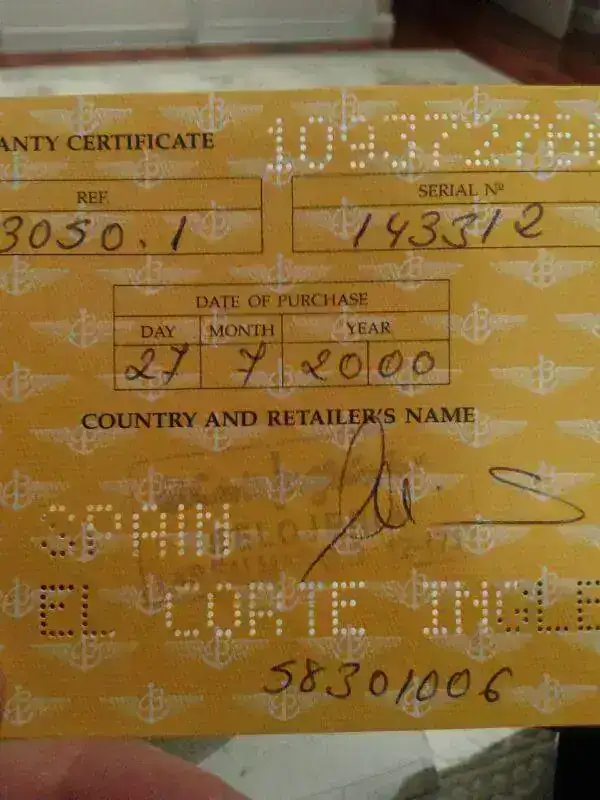 ANTY CERTIFICATE
10937276
REF.
SERIAL Nº
3050.1
143312
DATE OF PURCHASE
DAY MONTH YEAR
27 7 2000
COUNTRY AND RETAILER'S NAME
SPAIN
EL CORTE INGLE
58301006